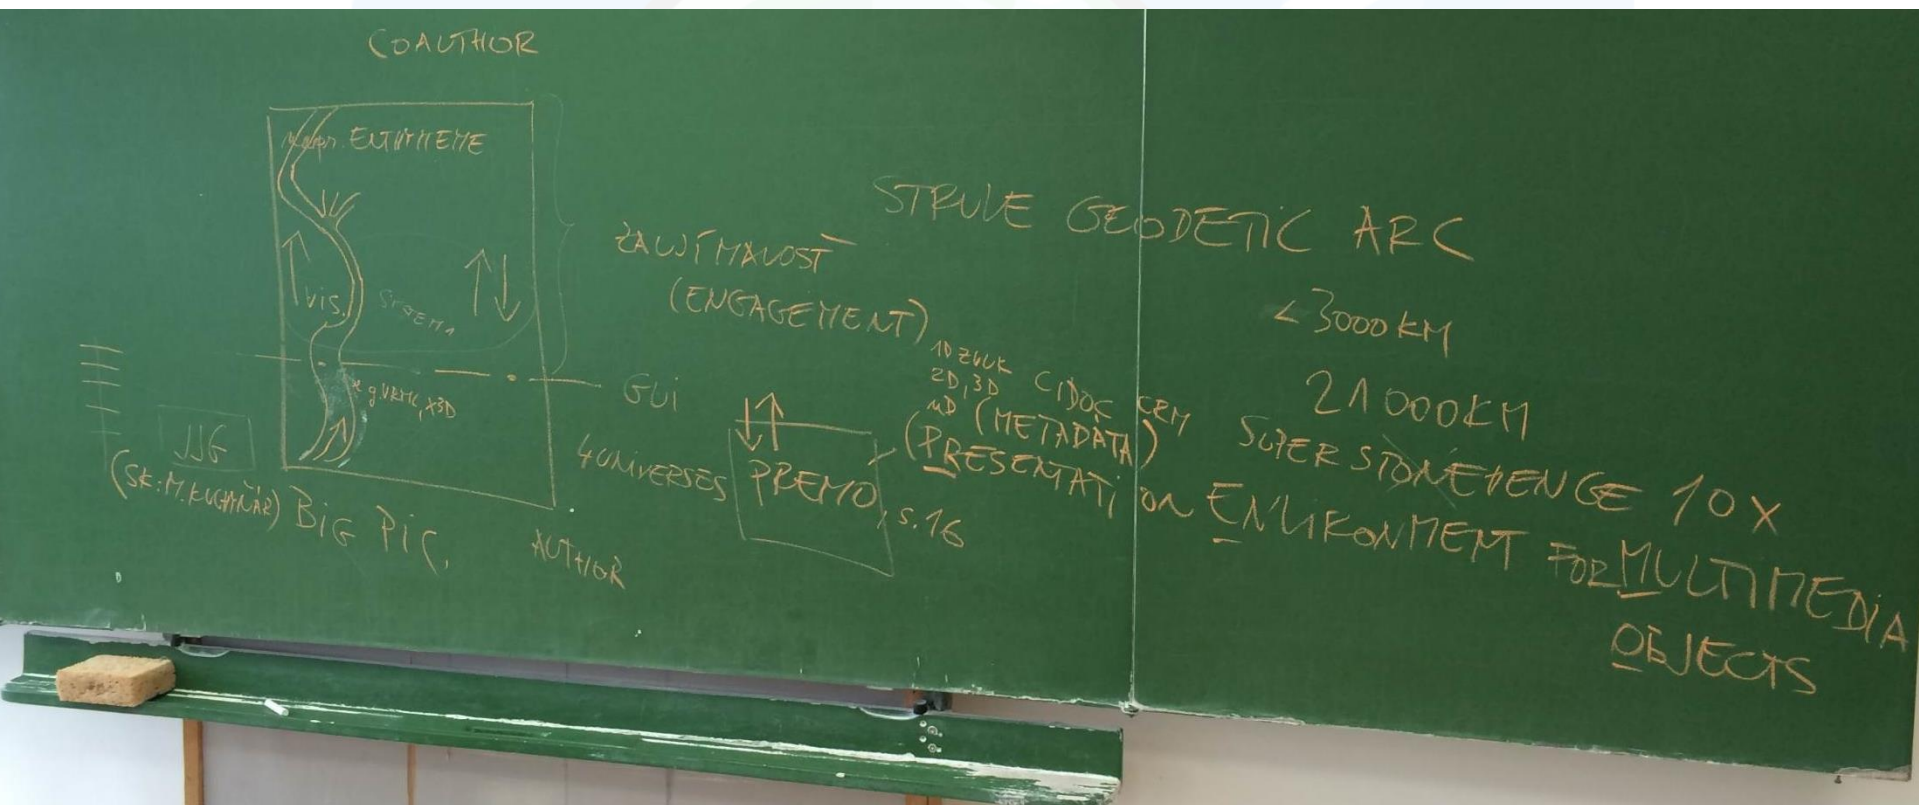 COAUTHOR
ENTHYMEME
VIS.
e.g. VRML, X3D
JJG
(SK: M. KUCHYŇÁR)
BIG PIC.
AUTHOR
ZAUJÍMAVOSŤ
(ENGAGEMENT)
GUI
4 UNIVERSES
PREMO, s. 16
1D ZVUK
2D, 3D
nD (METADATA)
CIDOC CRM
(PRESENTATION ENVIRONMENT FOR MULTIMEDIA
OBJECTS
STRUVE GEODETIC ARC
< 3000 KM
21 000 KM
SUPER STONEHENGE 10 X